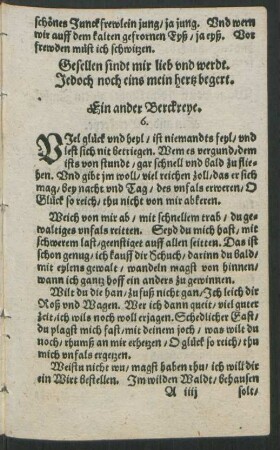 schönes Junckfrewlein jung/ ja jung. Vnd wern
wir auff dem kalten gefrornen Eyß/ ja eyß. Vor
frewden müst ich schwitzen.
Gesellen sindt mir lieb vnd werdt.
Jedoch noch eins mein hertz begert.
Ein ander Berckreye.
6.
VJel glück vnd heyl/ ist niemandts feyl/ vnd
lest sich nit betriegen. Wem es vergund/ dem
ists von stundt/ gar schnell vnd bald zu flie-
hen. Vnd gibt jm woll/ viel reichen zoll/ das er sich
mag/ bey nacht vnd Tag/ des vnfals erweren/ O
Glück so reich/ thu nicht von mir abkeren.
Weich von mir ab/ mit schnellem trab/ du ge-
waltiges vnfals reitten. Seyd du mich hast/ mit
schwerem last/ geenstiget auff allen seitten. Das ist
schon genug/ ich kauff dir Schuch/ darinn du bald/
mit eylens gewalt/ wandeln magst von hinnen/
wann ich gantz hoff ein anders zu gewinnen.
Wilt du die han/ zu fuß nicht gan/ Jch leich dir
Roß vnd Wagen. Wer ich dann queit/ viel guter
zeit/ ich wils noch woll erjagen. Schedlicher East/
du plagst mich fast/ mit deinem joch/ was wilt du
noch/ rhumß an mir erhetzen/ O glück so reich/ thu
mich vnfals ergetzen.
Weistu nicht wu/ magst haben rhu/ ich will dir
ein Wirt bestellen. Jm wilden Waldt/ behausen
A iiij solt/